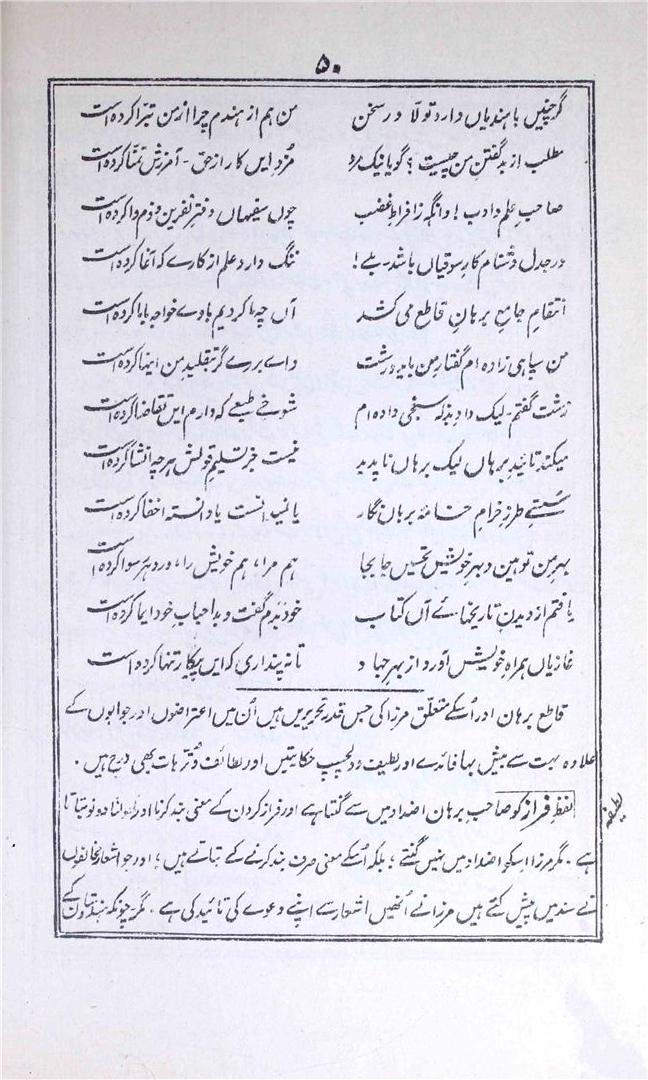 ۵۰
گر چنیں با ہندیاں دارد تولّا در سخن من ہم از ہندم چرا از من تبرّا کردہ است
مطلب از بد گفتنِ من چیست؟ گویا نیک مرد مزد ایں کار از حق - آمرزش تمنّا کردہ است
صاحبِ علم و ادب! وانگہ ز افراطِ غضب چوں سفیہاں دفترِ نفرین و ذم وا کردہ است
در جدل دشنام کارِ سوقیاں باشد - بلے! ننگ دارد علم از کارے کہ آغا کردہ است
انتقامِ جامعِ برہانِ قاطع می کشد آں چہ ما کردیم با وے خواجہ با ما کردہ است
من سپاہی زادہ ام گفتارِ من باید درشت واے بر وے گر بتقلیدِ من اینہا کردہ است
زشت گفتم - لیک دادِ بذلہ سنجی دادہ ام شوخیِ طبعے کہ دارم ایں تقاضا کردہ است
میکند تائیدِ برہاں لیک برہاں ناپدید نیست جز تسلیمِ قولش ہر چہ انشا کردہ است
سستیِ طرزِ خرامِ خامۂ برہاں نگار یا نیدانست یا دانستہ اخفا کردہ است
بہرِ من توہین و بہرِ خویش تحسیں جا بجا ہم مرا، ہم خویش را، در دہر رسوا کردہ است
یافتم از دیدنِ تاریخہائے آں کتاب خود بذم گفت و باحباب خود ایما کردہ است
غازیاں ہمراہِ خویش آورد از بہرِ جہاد تا نہ پنداری کہ ایں پیکار تنہا کردہ است
قاطع برہان اور اُسکے متعلق مرزا کی جس قدر تحریریں ہیں اُن میں اعتراضوں اور جوابوں کے
علاوہ بہت سے بیش بہا فائدے اور لطیف و دلچسپ حکایتیں اور لطائف و تُرّہات بھی درج ہیں ۔
لطیفہ
لفظِ فراز کو صاحبِ برہان اضداد میں سے گنتا ہے اور فراز کردن کے معنی بند کرنا اور کھولنا دونو بتاتا
ہے ۔ مگر مرزا اسکو اضداد میں نہیں گنتے؛ بلکہ اُسکے معنی صرف بند کرنے کے بتاتے ہیں؛ اور جو اشعار مخالفوں
نے سند میں پیش کئے ہیں مرزا نے اُنھیں اشعار سے اپنے دعوے کی تائید کی ہے ۔ مگر چونکہ ہندوستان کے